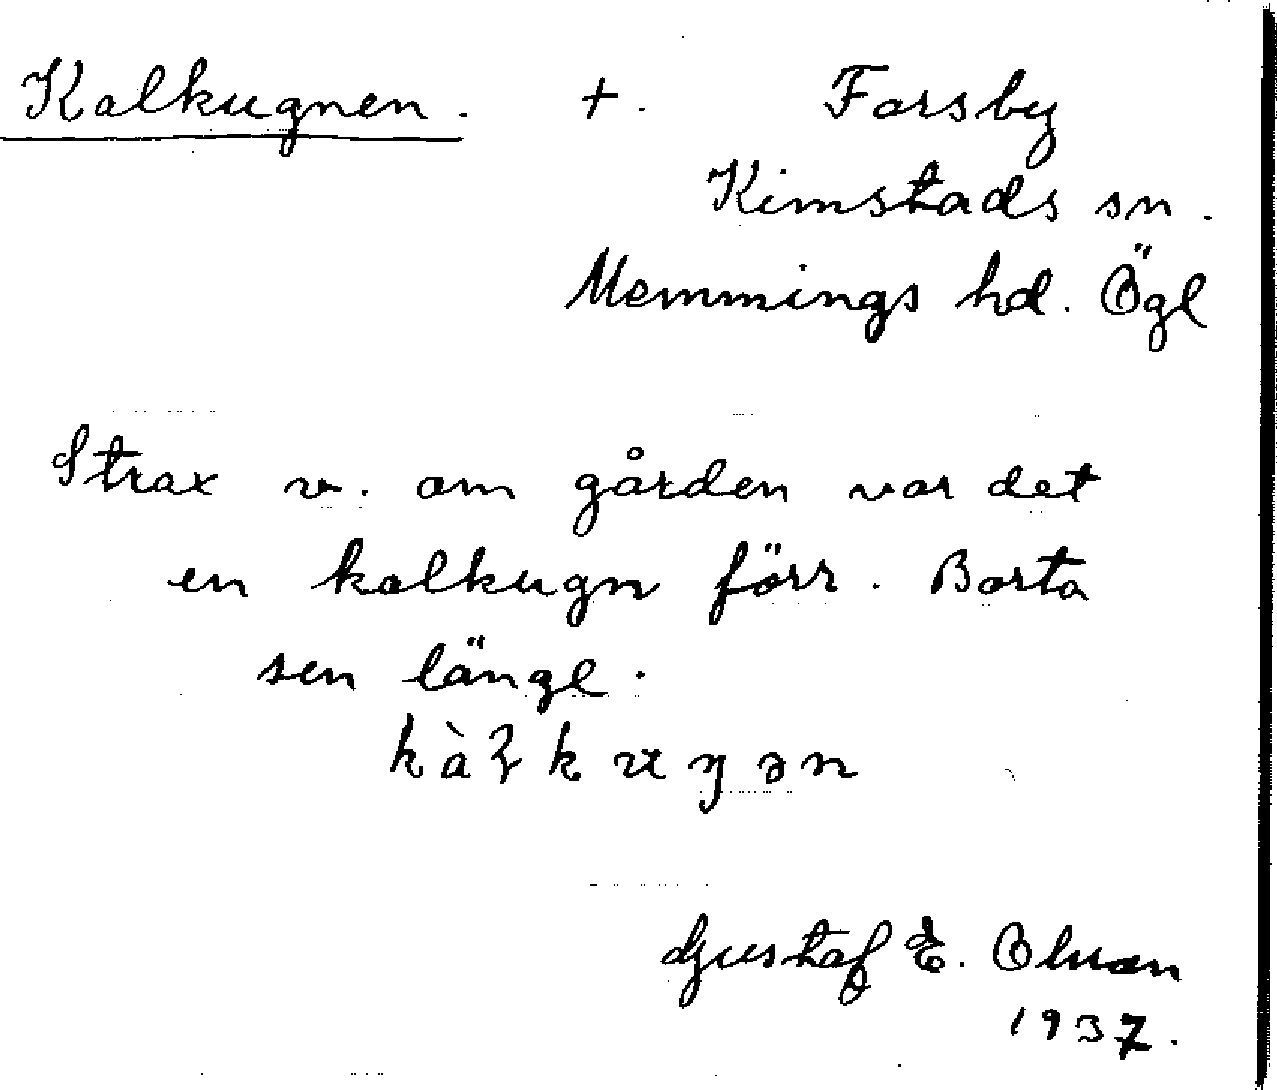 Kalkugnen. +. Forsby
Kimstads sn.
Memmings hd. Ögl
Strax v. om gården var det
en kalkugn förr. Borta
sen länge.
Gustaf E. Olsson
1937.